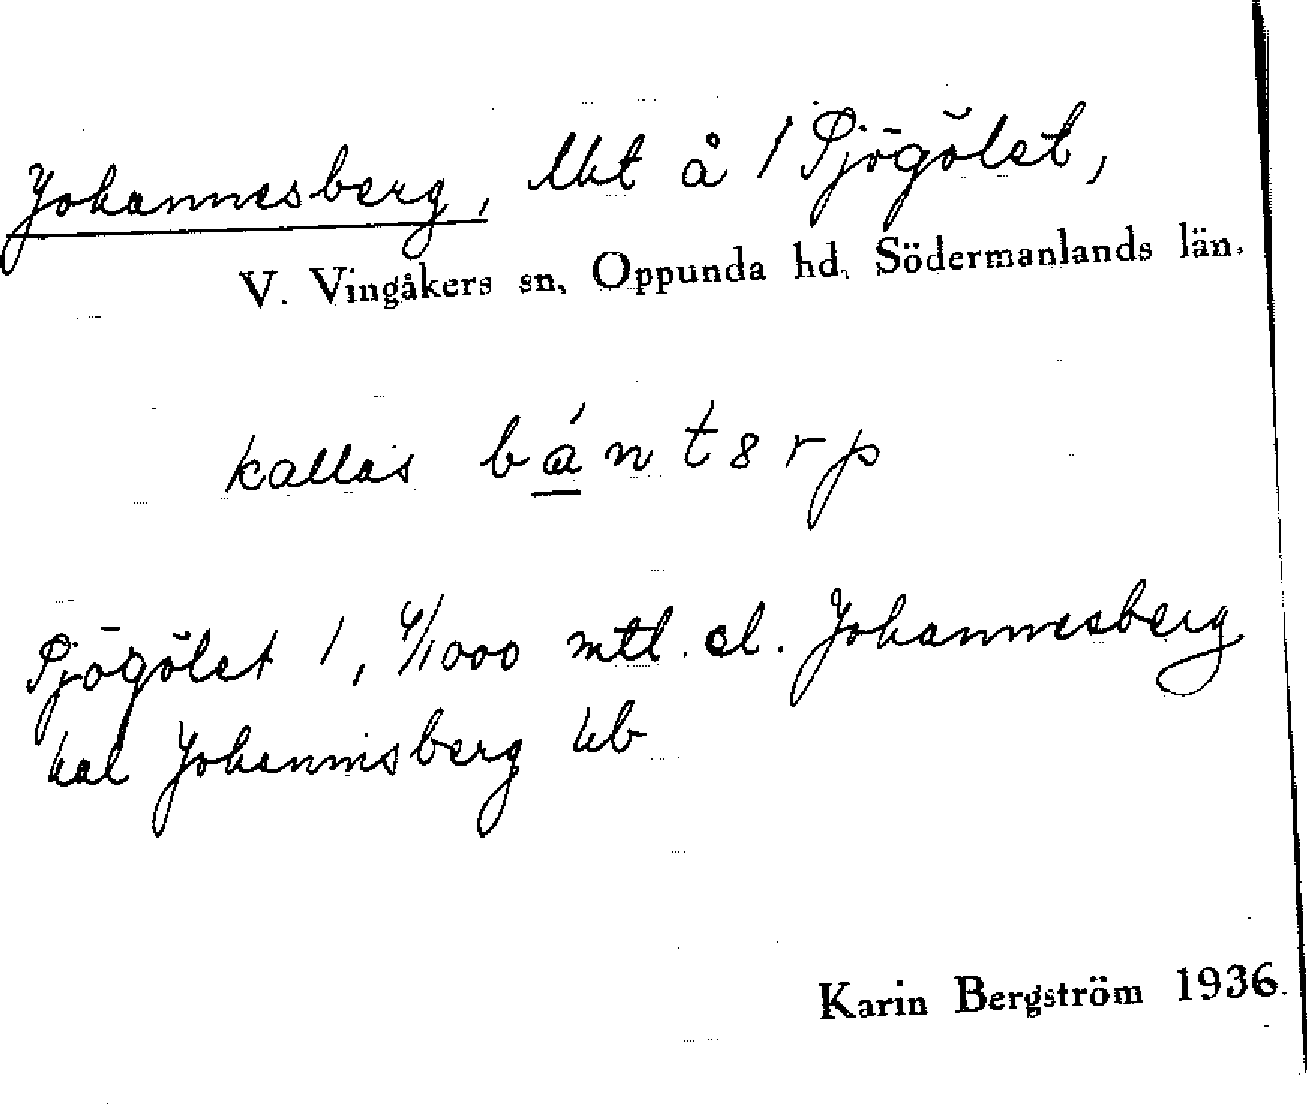 Johannesberg, lht å 1 Sjögölet,
V. Vingåkers sn, Oppunda hd, Södermanlands län.
kallas bántɜrp
Sjögölet 1, 4/1000 mtl el. Johannesberg
kal Johannisberg kb
Karin Bergström 1936.